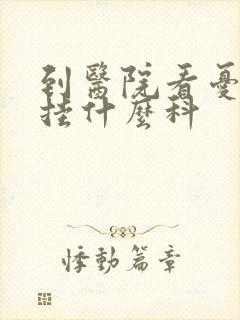 到醫院看憂
挂什麼科
悸動篇章